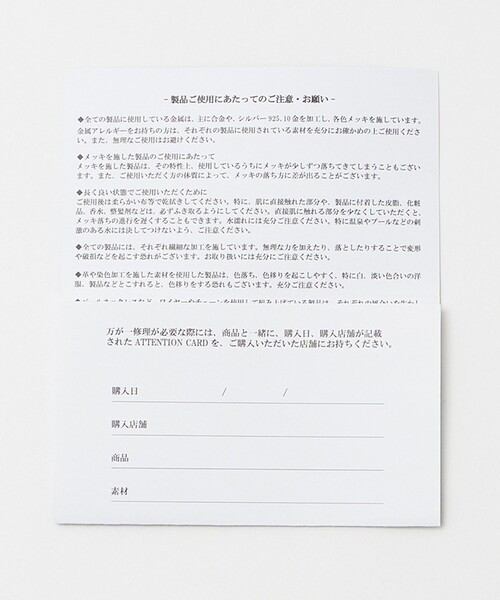 - 製品ご使用にあたってのご注意・お願い -
◆全ての製品に使用している金属は、主に合金や、シルバー925.10金を加工し、各色メッキを施しています。
金属アレルギーをお持ちの方は、それぞれの製品に使用されている素材を充分にお確かめの上ご使用くださ
い。また、無理なご使用はお避けください。
◆メッキを施した製品のご使用にあたって
メッキを施した製品は、その特性上、使用しているうちにメッキが少しずつ落ちてきてしまうこともござい
ます。また、ご使用いただく方の体質によって、メッキの落ち方に差が出ることがございます。
◆長く良い状態でご使用いただくために
ご使用後は柔らかい布等で乾拭きしてください。特に、肌に直接触れた部分や、製品に付着した皮脂、化粧
品、香水、整髪剤などは、必ずふき取るようにしてください。直接肌に触れる部分を少なくしていただくと、
メッキ落ちの進行を遅くすることもできます。水濡れには充分ご注意ください。特に温泉やプールなどの刺
激のある水には決してつけないよう、ご注意ください。
◆全ての製品には、それぞれ繊細な加工を施しています。無理な力を加えたり、落としたりすることで変形
や破損などを起こす恐れがございます。お取り扱いには充分にご注意ください。
◆革や染色加工を施した素材を使用した製品は、色落ち、色移りを起こしやすく、特に白、淡い色合いの洋
服、製品などとこすれると、色移りをする恐れもございます。充分ご注意ください。
万が一修理が必要な際には、商品と一緒に、購入日、購入店舗が記載
された ATTENTION CARD を、ご購入いただいた店舗にお持ちください。
購入日 / /
購入店舗
商品
素材